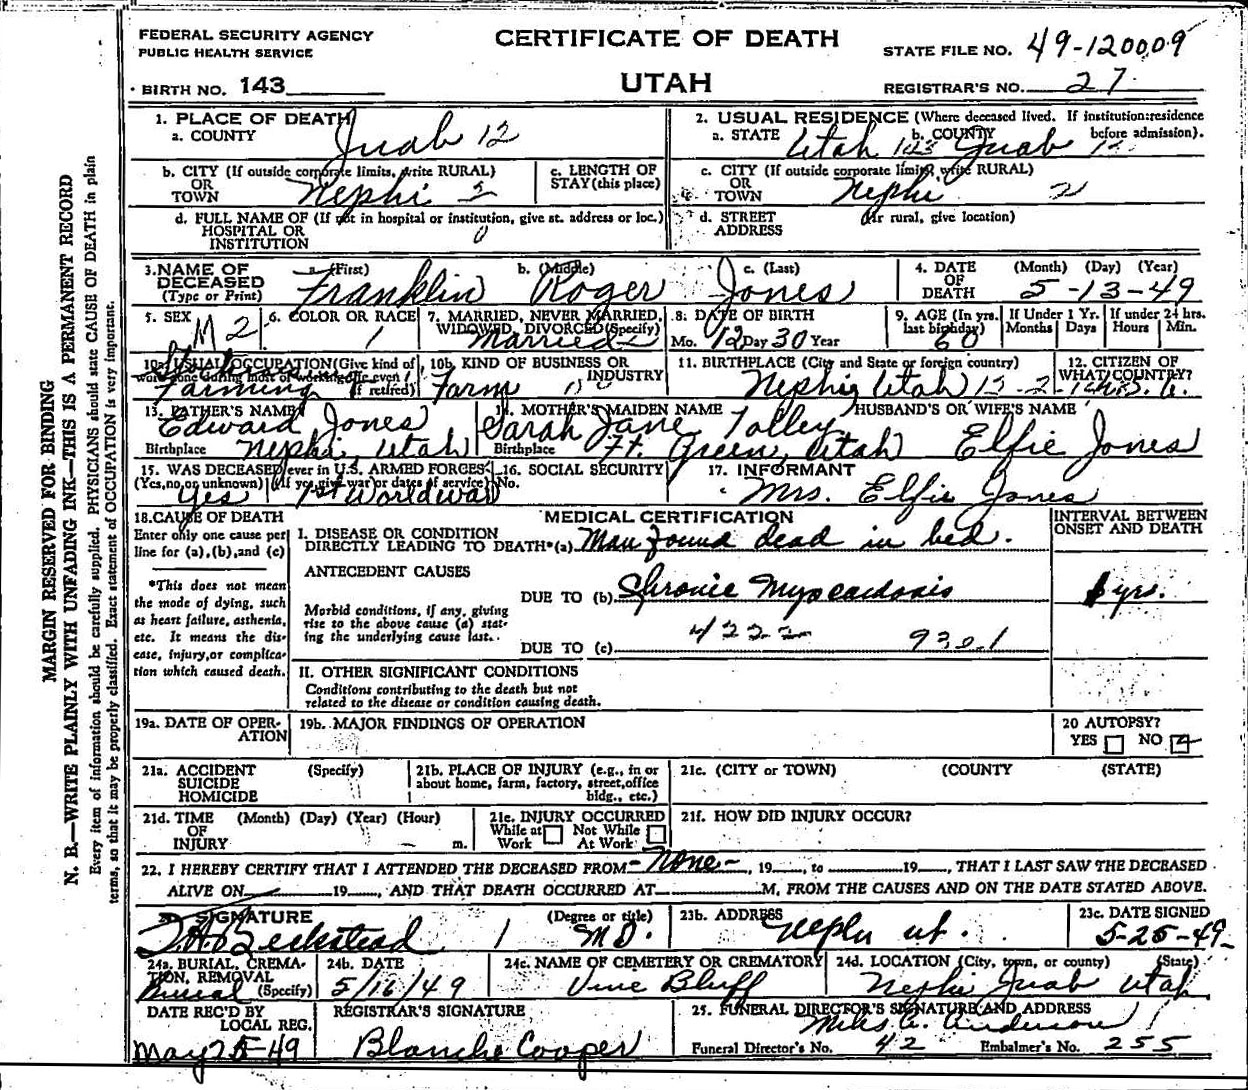 FEDERAL SECURITY AGENCY
PUBLIC HEALTH SERVICE
CERTIFICATE OF DEATH
STATE FILE NO. 49-120009
BIRTH NO. 143
UTAH
REGISTRAR'S NO. 27
1. PLACE OF DEATH
a. COUNTY Juab 12
2. USUAL RESIDENCE (Where deceased lived. If institution:residence before admission).
a. STATE Utah b. COUNTY Juab
b. CITY (If outside corporate limits, write RURAL) OR TOWN Nephi 2
c. LENGTH OF STAY (this place)
c. CITY (If outside corporate limits, write RURAL) OR TOWN Nephi 2
d. FULL NAME OF (If not in hospital or institution, give st. address or loc.) HOSPITAL OR INSTITUTION 0
d. STREET ADDRESS (If rural, give location)
3. NAME OF DECEASED (Type or Print)
a. (First) Franklin b. (Middle) Roger c. (Last) Jones
4. DATE OF DEATH (Month) (Day) (Year) 5-13-49
5. SEX M 2
6. COLOR OR RACE 1
7. MARRIED, NEVER MARRIED, WIDOWED, DIVORCED (Specify) Married
8. DATE OF BIRTH Mo. 12 Day 30 Year
9. AGE (In yrs. last birthday) 60
If Under 1 Yr. Months Days
If under 24 hrs. Hours Min.
10a. USUAL OCCUPATION (Give kind of work done during most of working life even if retired) Farming
10b. KIND OF BUSINESS OR INDUSTRY Farm
11. BIRTHPLACE (City and State or foreign country) Nephi, Utah
12. CITIZEN OF WHAT COUNTRY?
13. FATHER'S NAME Edward Jones
Birthplace Nephi, Utah
14. MOTHER'S MAIDEN NAME Sarah Jane Tolley
Birthplace Ft. Green, Utah
HUSBAND'S OR WIFE'S NAME
Elfie Jones
15. WAS DECEASED ever in U.S. ARMED FORCES?
(Yes, no, or unknown) (If yes, give war or dates of service)
Yes 1st World War
16. SOCIAL SECURITY No.
17. INFORMANT
Mrs. Elfie Jones
18. CAUSE OF DEATH
Enter only one cause per line for (a), (b), and (c)
MEDICAL CERTIFICATION
INTERVAL BETWEEN ONSET AND DEATH
I. DISEASE OR CONDITION
DIRECTLY LEADING TO DEATH*(a) Man found dead in bed.
*This does not mean the mode of dying, such as heart failure, asthenia, etc. It means the disease, injury, or complication which caused death.
ANTECEDENT CAUSES
DUE TO (b) Chronic Myocardosis yrs.
Morbid conditions, if any, giving rise to the above cause (a) stating the underlying cause last.
4222
DUE TO (c)
II. OTHER SIGNIFICANT CONDITIONS
Conditions contributing to the death but not related to the disease or condition causing death.
19a. DATE OF OPERATION
19b. MAJOR FINDINGS OF OPERATION
20 AUTOPSY?
YES NO
21a. ACCIDENT SUICIDE HOMICIDE (Specify)
21b. PLACE OF INJURY (e.g., in or about home, farm, factory, street, office bldg., etc.)
21c. (CITY or TOWN) (COUNTY (STATE)
21d. TIME OF INJURY (Month) (Day) (Year) (Hour) m.
21e. INJURY OCCURRED
While at Work Not While At Work
21f. HOW DID INJURY OCCUR?
22. I HEREBY CERTIFY THAT I ATTENDED THE DECEASED FROM - None -, 19__, to 19__, THAT I LAST SAW THE DECEASED
ALIVE ON 19__, AND THAT DEATH OCCURRED AT M, FROM THE CAUSES AND ON THE DATE STATED ABOVE.
SIGNATURE (Degree or title)
Beckstead 1 M.D.
23b. ADDRESS Nephi Ut.
23c. DATE SIGNED 5-25-49
24a. BURIAL, CREMATION, REMOVAL (Specify) Burial
24b. DATE 5/16/49
24c. NAME OF CEMETERY OR CREMATORY Vine Bluff
24d. LOCATION (City, town, or county) (State)
Nephi Juab Utah
DATE REC'D BY LOCAL REG.
May 25-49
REGISTRAR'S SIGNATURE
Blanche Cooper
25. FUNERAL DIRECTOR'S SIGNATURE AND ADDRESS
Anderson
Funeral Director's No. 42 Embalmer's No. 255
MARGIN RESERVED FOR BINDING
N. B.—WRITE PLAINLY WITH UNFADING INK—THIS IS A PERMANENT RECORD
Every item of information should be carefully supplied. PHYSICIANS should state CAUSE OF DEATH in plain
terms, so that it may be properly classified. Exact statement of OCCUPATION is very important.